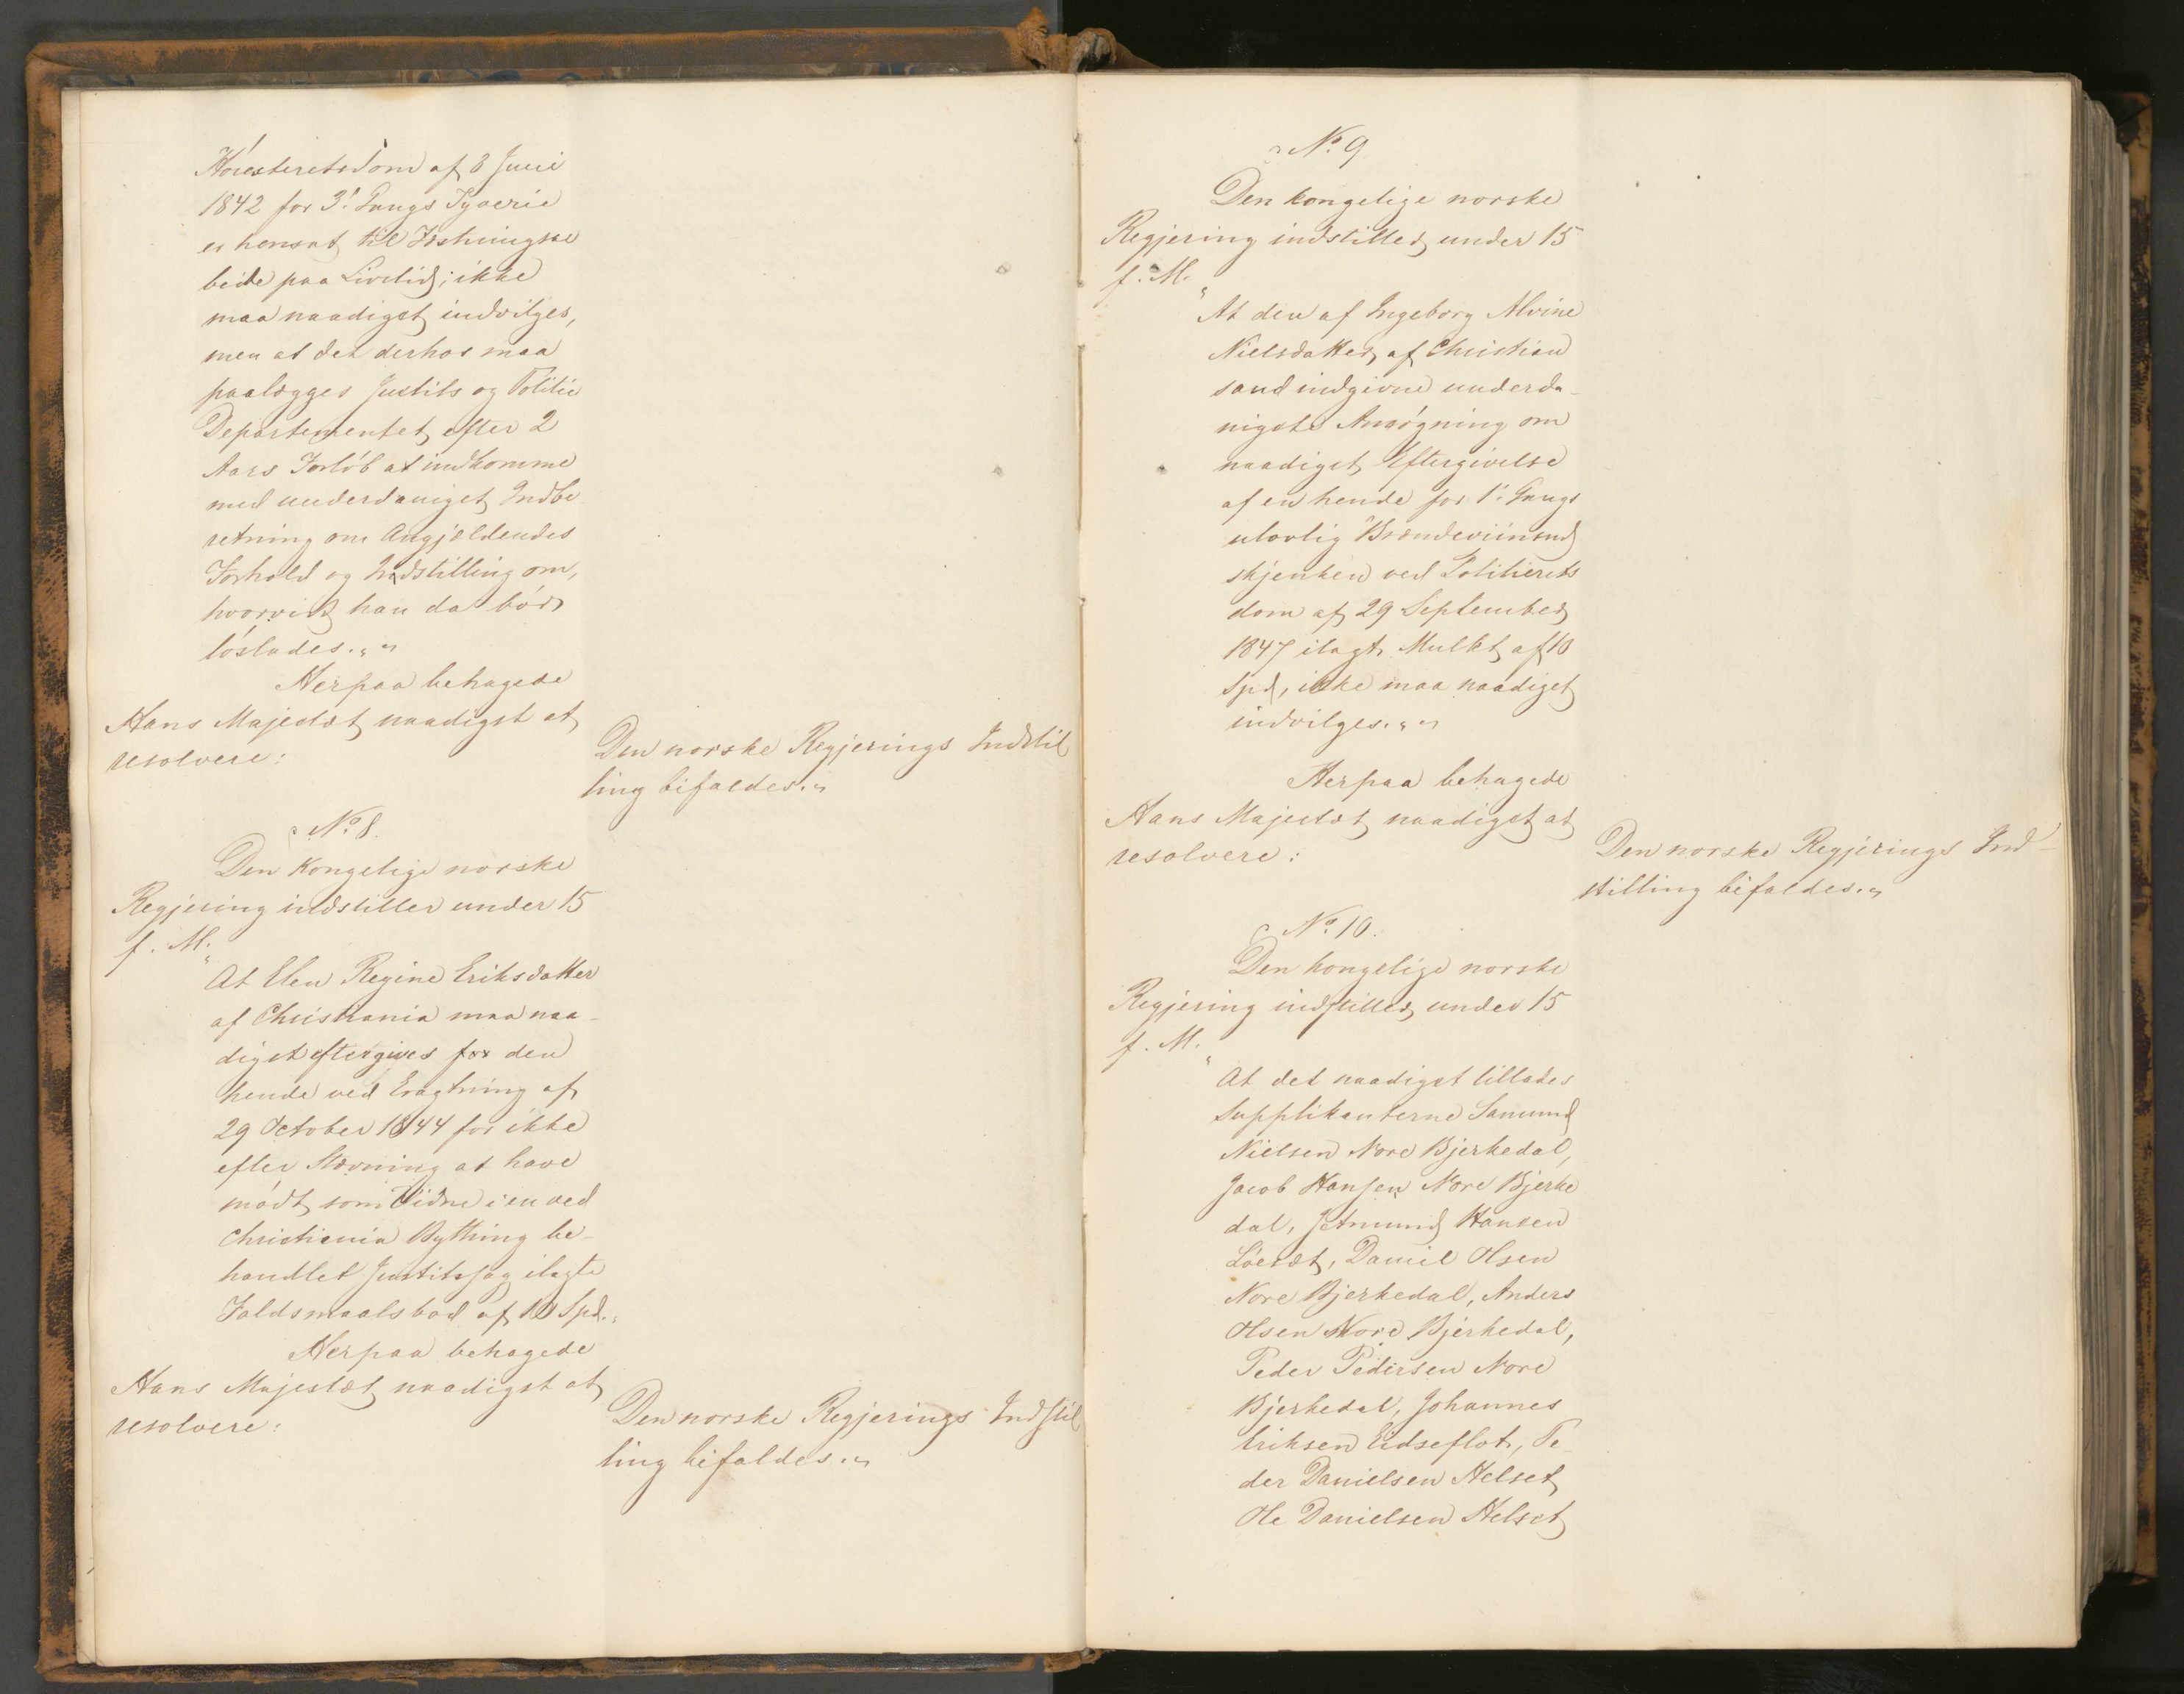 Høiesteretsdom af 8 Juni
1842 for 3' Gangs Tyverie
er hensat til Fæstningsar
beide paa Livstid; ikke
maa naadigst indvilges,
men at det derhos maa
paalægges Justits og Politie
Departementet efter 2
Aars Forløb at indkomme
med underdanigst Indbe
retning om Angjældendes
Forhold og Indstilling om,
hvorvidt han da bør
løslades.„„
Herpaa behagede
Hans Majestæt naadigst at
resolvere:
Den norske Regjerings Indstil
ling bifaldes.„
No 8.
Den Kongelige norske
Regjering indstiller under 15
f. M.
„At Elen Regine Eriksdatter
af Christiania maa naa-
digst eftergives for den
hende ved Eragtning af
29 October 1844 for ikke
efter Stævning at have
mødt som Vidne i en ved
Christiania Bything be-
handlet Justitssag ilagte
Faldsmaalsbod af 10 Spd.„
Herpaa behagede
Hans Majestæt naadigst at
resolvere:
Den norske Regjerings Indstil
ling bifaldes.„
No 9
Den kongelige norske
Regjering indstiller under 15
f. M.
„At den af Ingeborg Alvine
Nielsdatter af Christian
sand indgivne underda-
nigste Ansøgning om
naadigst Eftergivelse
af en hende for 1' Gangs
ulovlig Brændeviinsud
skjenken ved Politierets
dom af 29 September
1847 ilagt Mulkt af 10
Spd, ikke maa naadigst
indvilges.„„
Herpaa behagede
Hans Majestæt naadigst at
resolvere:
Den norske Regjerings Ind-
stilling bifaldes.„
No 10.
Den kongelige norske
Regjering indstiller under 15
f. M.
„At det naadigst tillades
Supplikanterne Samund
Nielsen Nore Bjerkedal,
Jacob Hansen Nore Bjerke
dal, Jetmund Hansen
Løesæt, Daniel Olsen
Nore Bjerkedal, Anders
Olsen Nore Bjerkedal,
Peder Pedersen Nore
Bjerkedal, Johannes
Eriksen Eidseflot, Pe-
der Danielsen Helset
Ole Danielsen Helset